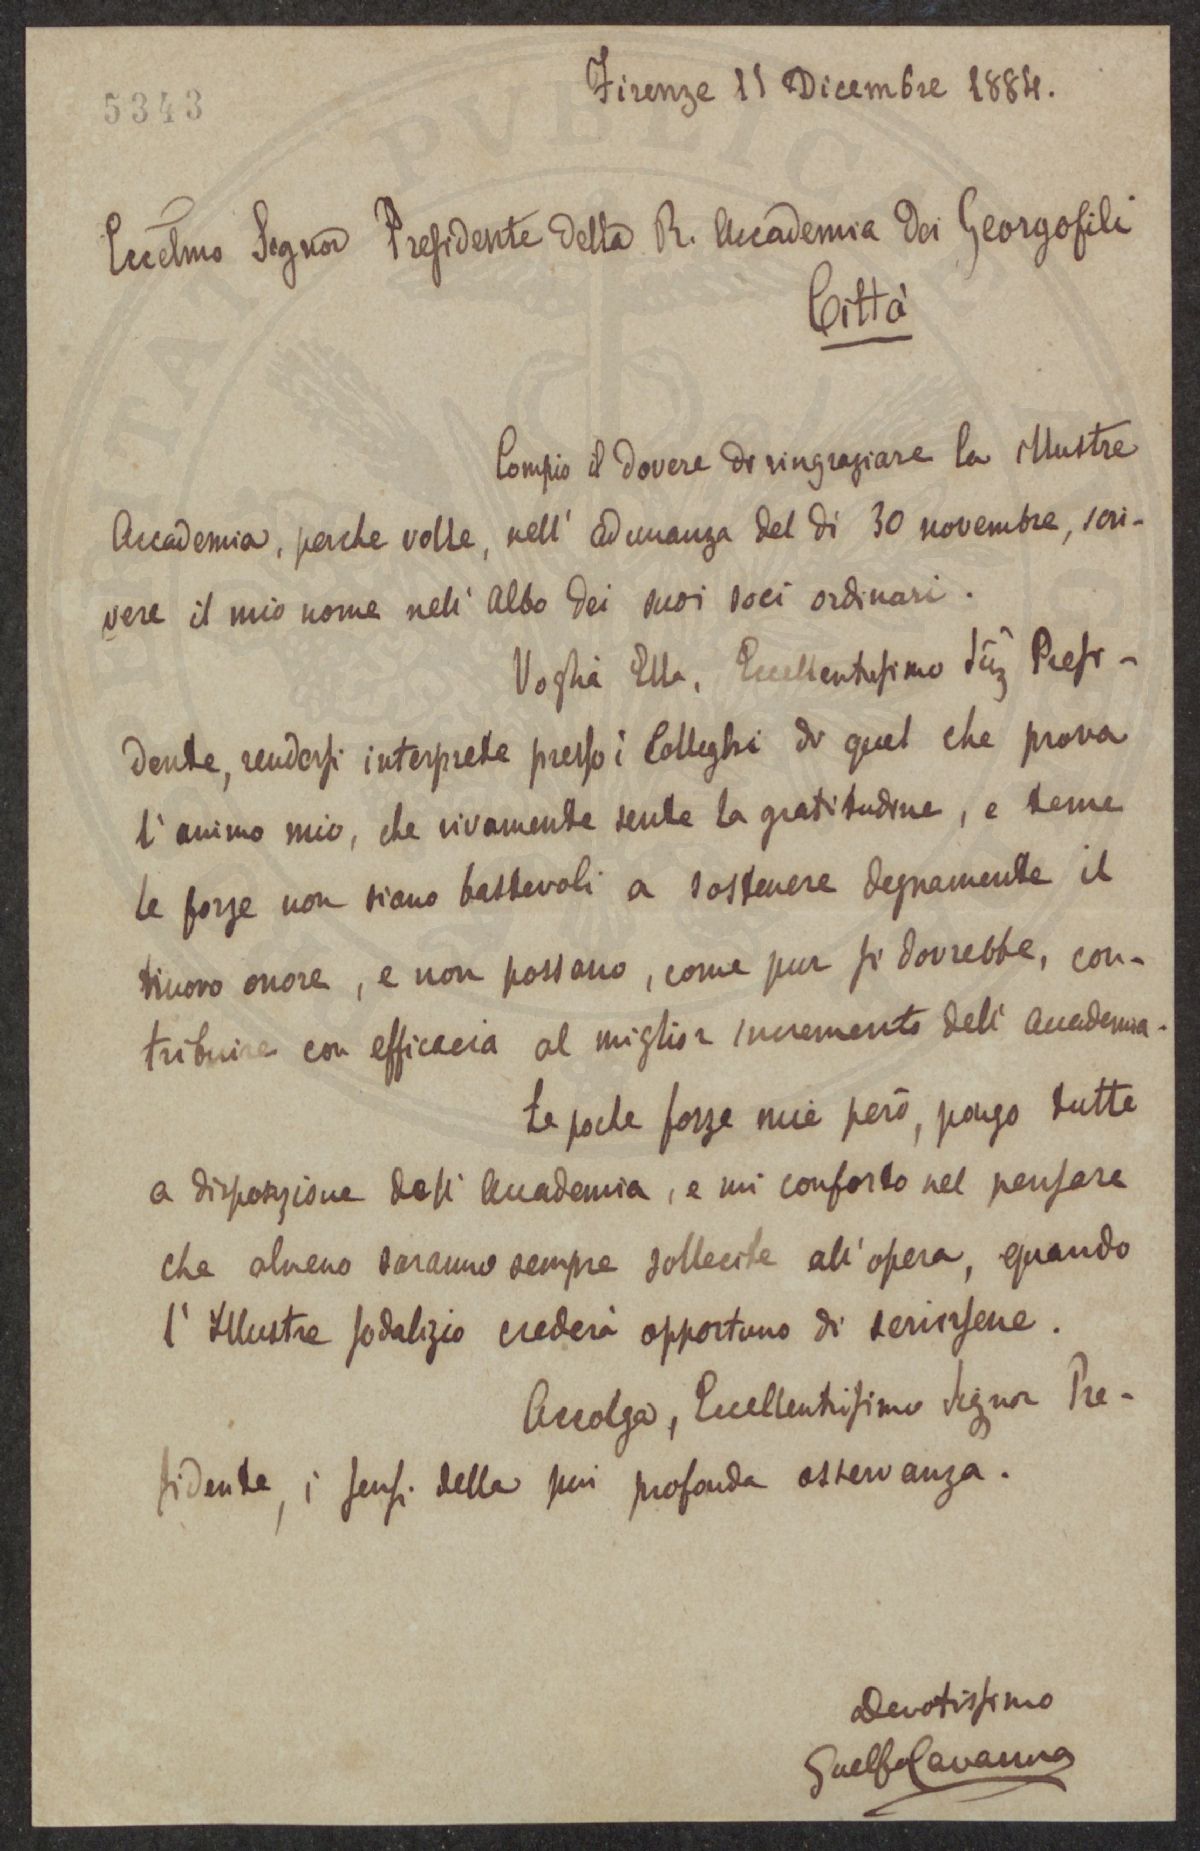 5343
Firenze 11 Dicembre 1884.
Eccelmo Signor Presidente della R. Accademia dei Georgofili
Città
Compio il dovere di ringraziare la illustre
Accademia, perche volle, nell' adunanza del dì 30 novembre, scri-
vere il mio nome nell' Albo dei suoi soci ordinari.
Voglia Ella, Eccellentissimo Sig Presi-
dente, rendersi interprete presso i Colleghi di quel che prova
l'animo mio, che vivamente sente la gratitudine, e teme
le forze non siano bastevoli a sostenere degnamente il
nuovo onore, e non possano, come pur si dovrebbe, con-
tribuire con efficacia al miglior incremento dell' Accademia.
Le poche forze mie però, pongo tutte
a disposizione dell' Accademia, e mi conforto nel pensare
che almeno saranno sempre sollecite all'opera, quando
l' Illustre sodalizio crederà opportuno di servirsene.
Accolga, Eccellentissimo Signor Pre-
sidente, i sensi della più profonda osservanza.
Devotissimo
Guelfo Cavanna